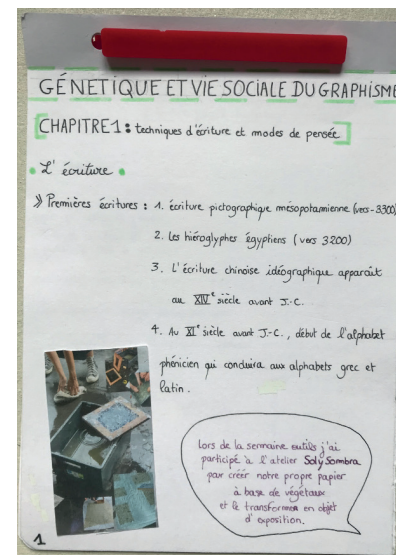 GÉNETIQUE ET VIE SOCIALE DU GRAPHISME
CHAPITRE 1 : techniques d'écriture et modes de pensée
L'écriture
» Premières écritures : 1. écriture pictographique mésopotamienne (vers -3300)
2. Les hiéroglyphes égyptiens (vers 3200)
3. L'écriture chinoise idéographique apparaît
au XIVe siècle avant J.-C.
4. Au XIe siècle avant J.-C., début de l'alphabet
phénicien qui conduira aux alphabets grec et
latin.
Lors de la semaine outils j'ai
participé à l'atelier Sol y Sombra
pour créer notre propre papier
à base de végétaux
et le transformer en objet
d'exposition.
1